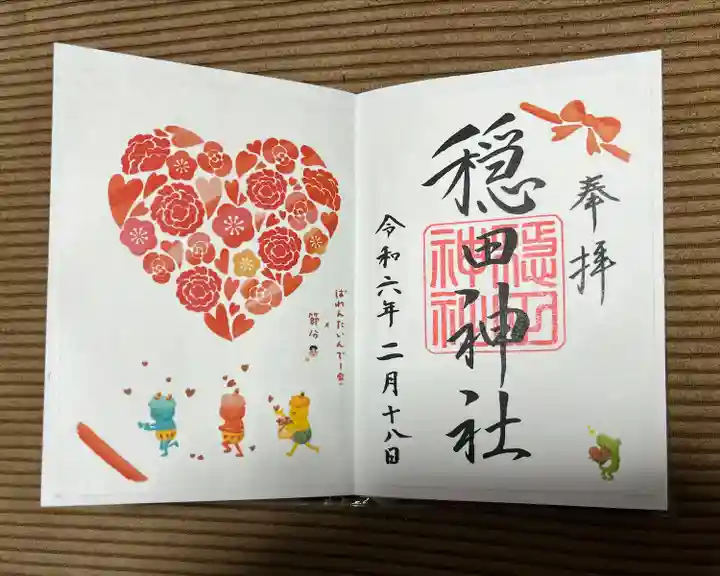 奉拝
穏田神社
令和六年二月十八日
ばれんたいんでー
節分